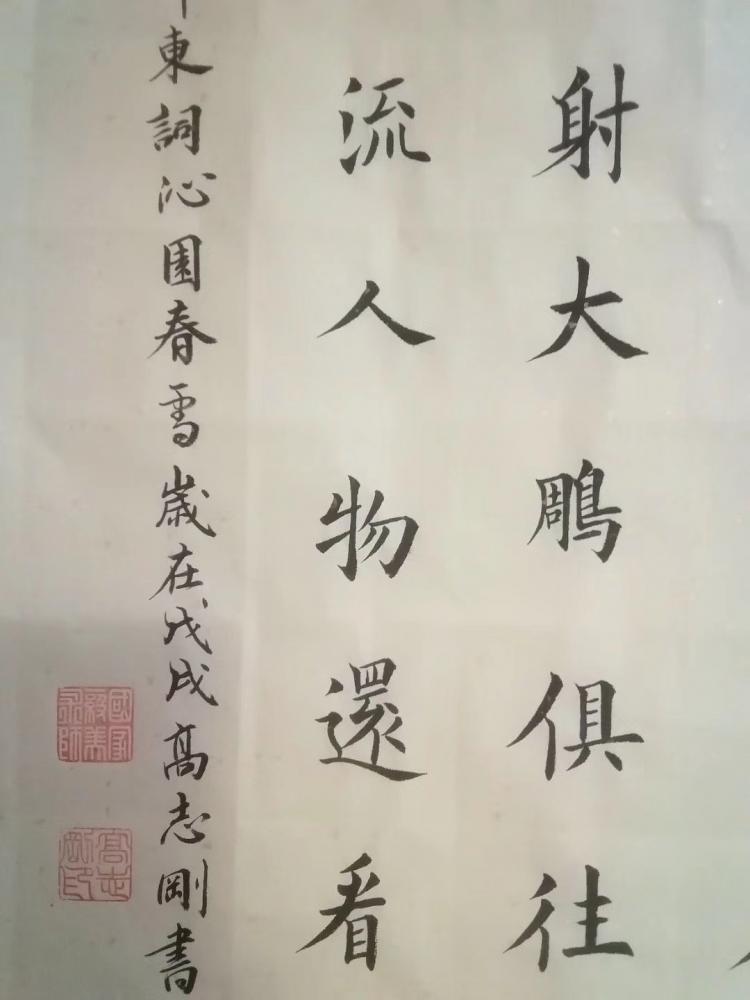 射大鵰俱往
流人物還看
東詞沁園春雪歲在戊戌高志剛書
高志剛印